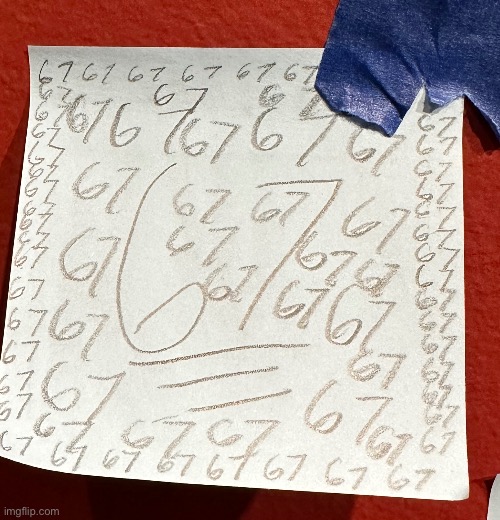 67 67 67 67 67 67
67 67 67
67 67 67 67 67 67 67
67 67
67 67
67 67 67
67 67 67 67 67
67 67 67
67 67 67 67 67
67 67 67
67 67 67 67
67
67 67 67 67
67 67 67
67 67 67
67 67 67
67 67 67 67 67 67
67 67 67 67 67 67 67 67
imgflip.com